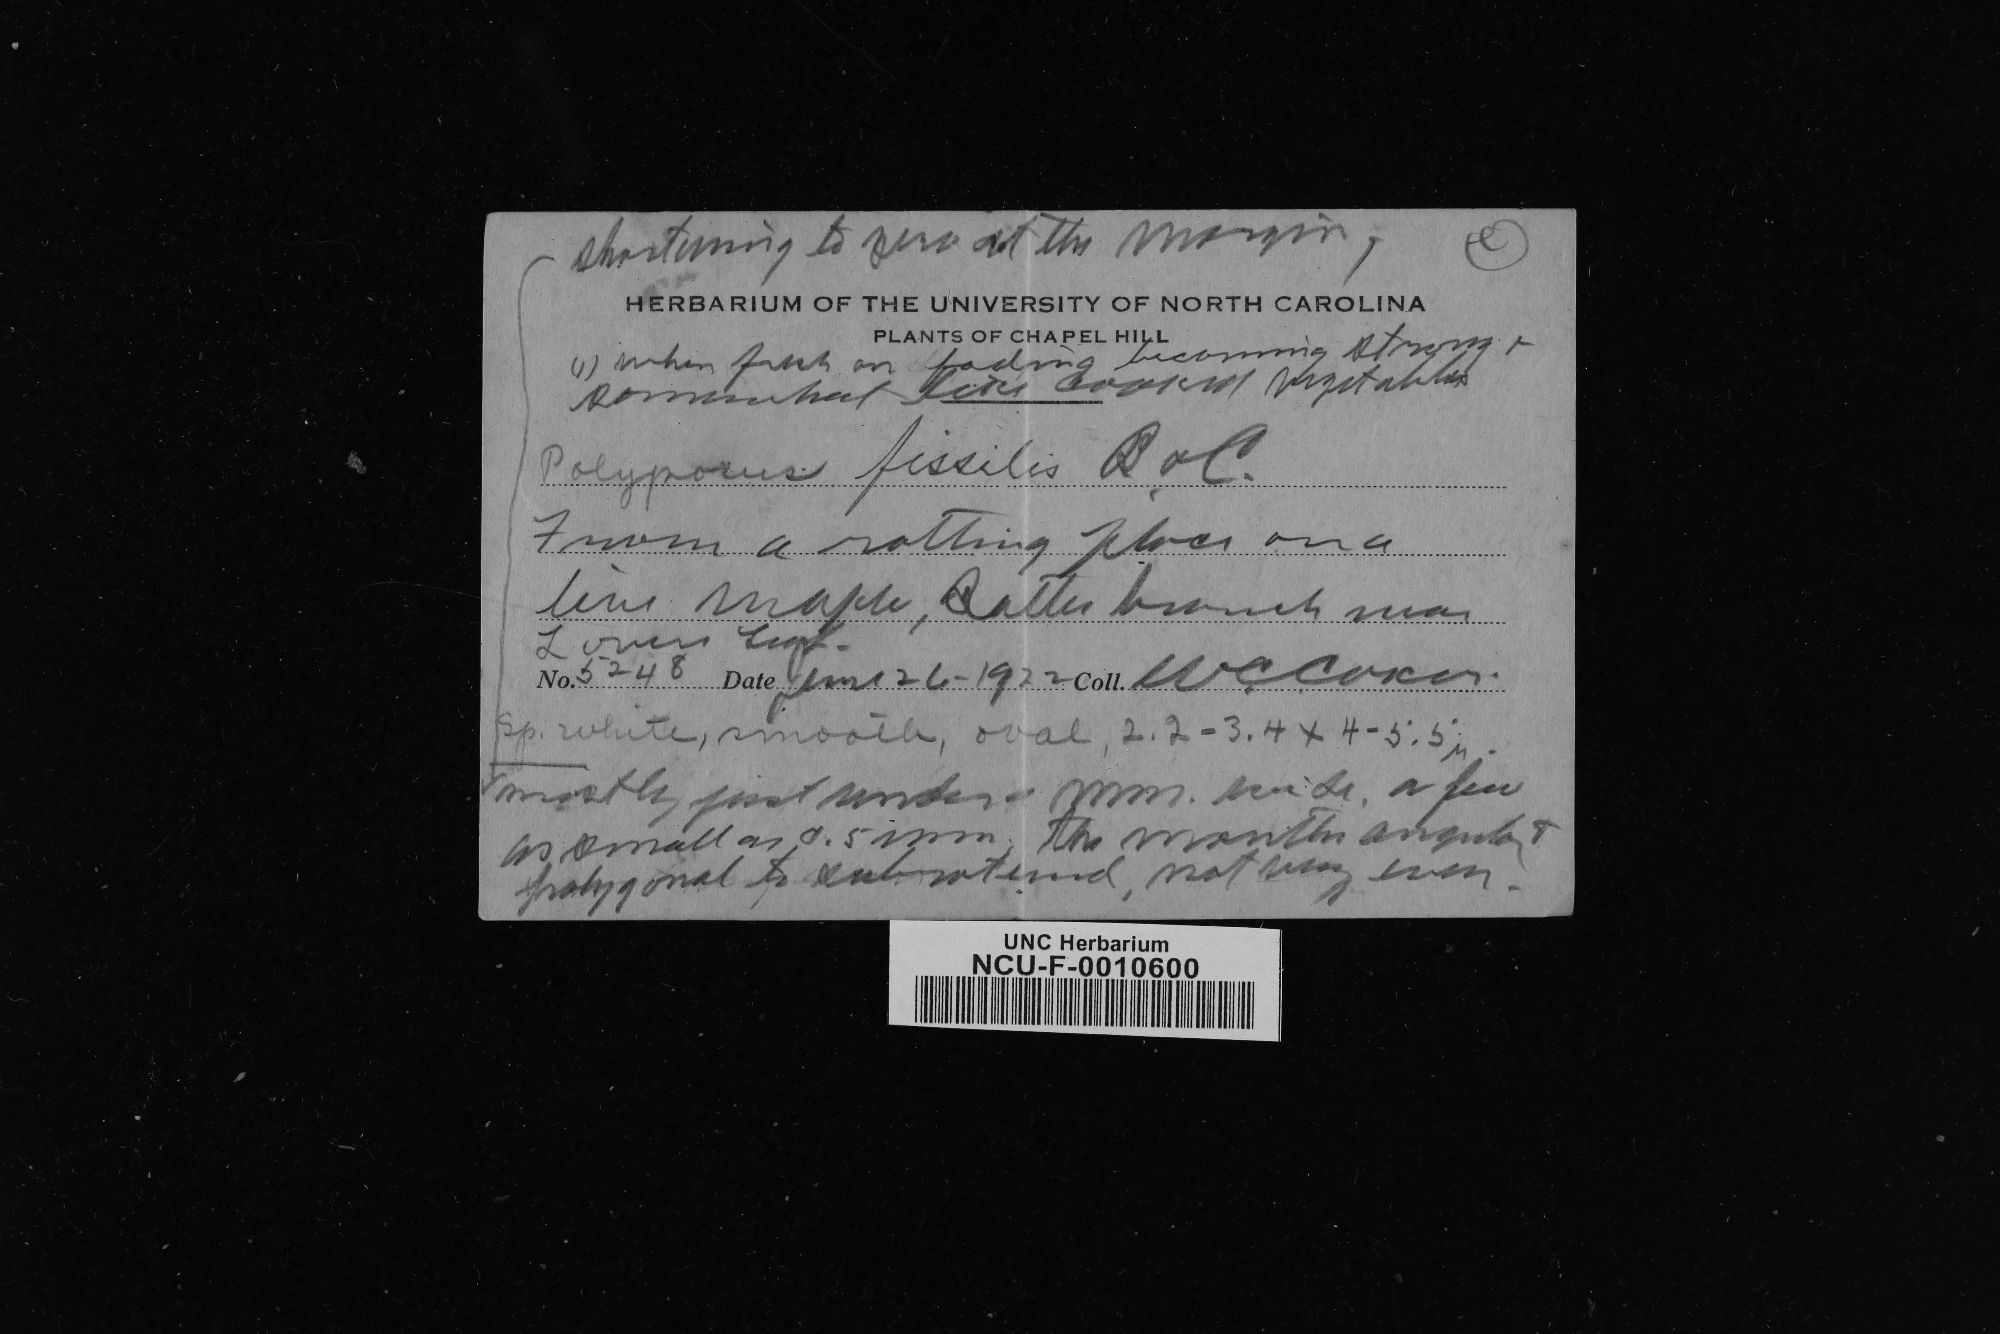 shortening to zero at the margin,
2
HERBARIUM OF THE UNIVERSITY OF NORTH CAROLINA
PLANTS OF CHAPEL HILL
(1) when fresh on fading becoming strong &
somewhat like cooked vegetables
Polyporus fissilis B & C.
From a rotting place on a
live maple, Battle branch near
Lovers Leap.
No. 5248 Date June 26-1922 Coll. W C Coker.
Sp. white, smooth, oval, 2.2-3.4 x 4-5.5µ.
mostly just under mm. wide, a few
as small as 0.5 mm, the mouths angular &
polygonal to subrotund, not very even.
UNC Herbarium
NCU-F-0010600